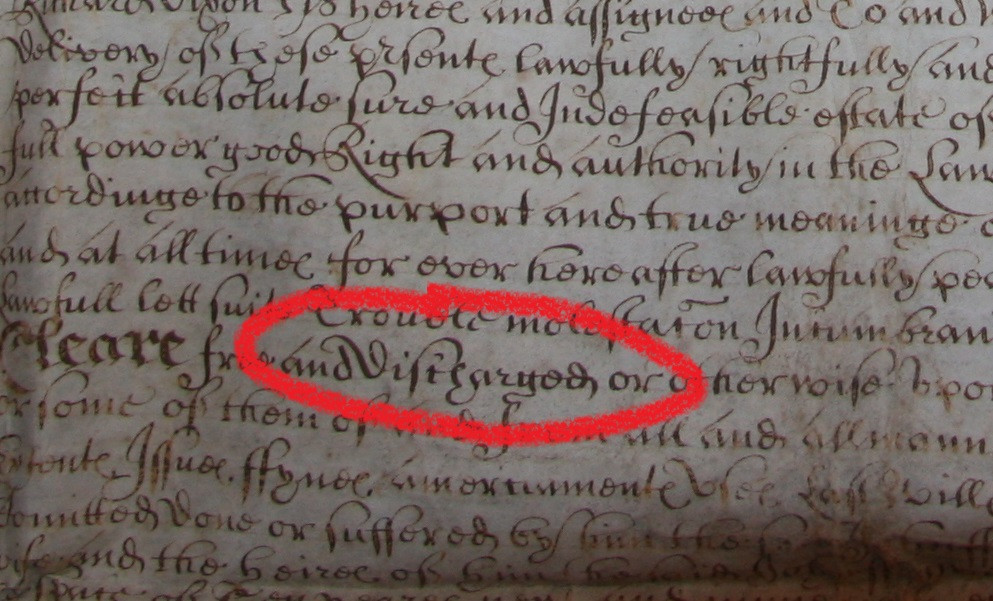 his heires and assignees and to and
delivery of these psente lawfully rightfully and
perfect absolute sure and Indefeasible estate of
full power good Right and authority in the Law
accordinge to the purport and true meaninge
and at all times for ever hereafter lawfully
lawfull lett suit Trouble molestacon Incumbran
Cleare free and Discharged or otherwise
or some of them of and all and all mann
Issues ffynes amerciamente Uses Last Will
Comitted Done or suffered by him the
and the heires of him